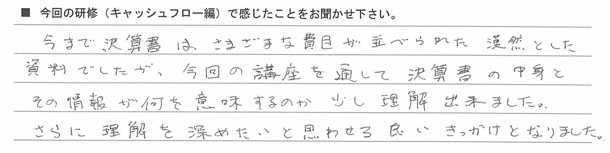 ■ 今回の研修（キャッシュフロー編）で感じたことをお聞かせ下さい。
今まで決算書は、さまざまな費目が並べられた漠然とした
資料でしたが、今回の講座を通して決算書の中身と
その情報が何を意味するのか少し理解出来ました。
さらに理解を深めたいと思わせる良いきっかけとなりました。